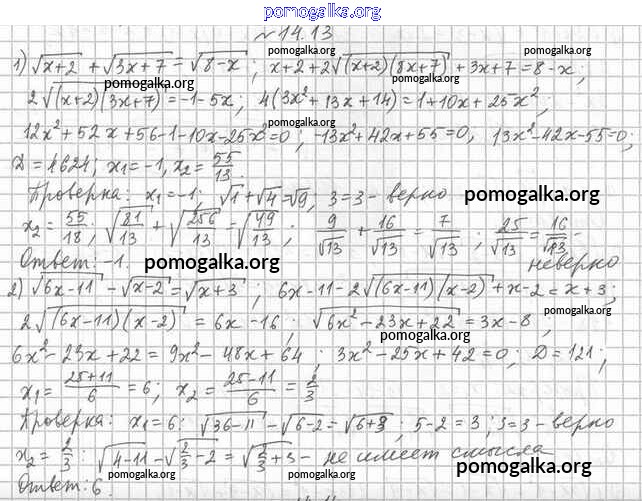 pomogalka.org
№14.13
pomogalka.org pomogalka.org
1) √(x+2) + √(3x+7) = √(8-x); x+2+2√((x+2)(8x+7)) + 3x+7 = 8-x;
pomogalka.org pomogalka.org
2√((x+2)(3x+7)) = -1-5x; 4(3x²+13x+14) = 1+10x+25x²,
pomogalka.org
12x²+52x+56-1-10x-25x²=0; -13x²+42x+55=0, 13x²-42x-55=0;
D=4624; x₁=-1, x₂=55/13.
Проверка: x₁=-1; √1+√4=√9, 3=3 - верно pomogalka.org
x₂=55/18; √(81/13) + √(256/13) = √(49/13); 9/√13 + 16/√13 = 7/√13; 25/√13 = 16/√13 -
Ответ: -1. pomogalka.org неверно
2) √(6x-11) - √(x-2) = √(x+3); 6x-11-2√((6x-11)(x-2)) + x-2 = x+3;
pomogalka.org pomogalka.org
2√((6x-11)(x-2)) = 6x-16; √(6x²-23x+22) = 3x-8,
pomogalka.org
6x²-23x+22 = 9x²-48x+64; 3x²-25x+42=0; D=121;
x₁= (25+11)/6 = 6; x₂ = (25-11)/6 = 2/3
pomogalka.org
Проверка: x₁=6; √(36-11) - √(6-2) = √(6+3); 5-2=3; 3=3 - верно
x₂=2/3; √(4-11) - √(2/3-2) = √(2/3+3) - не имеет смысла
pomogalka.org pomogalka.org pomogalka.org
Ответ: 6.